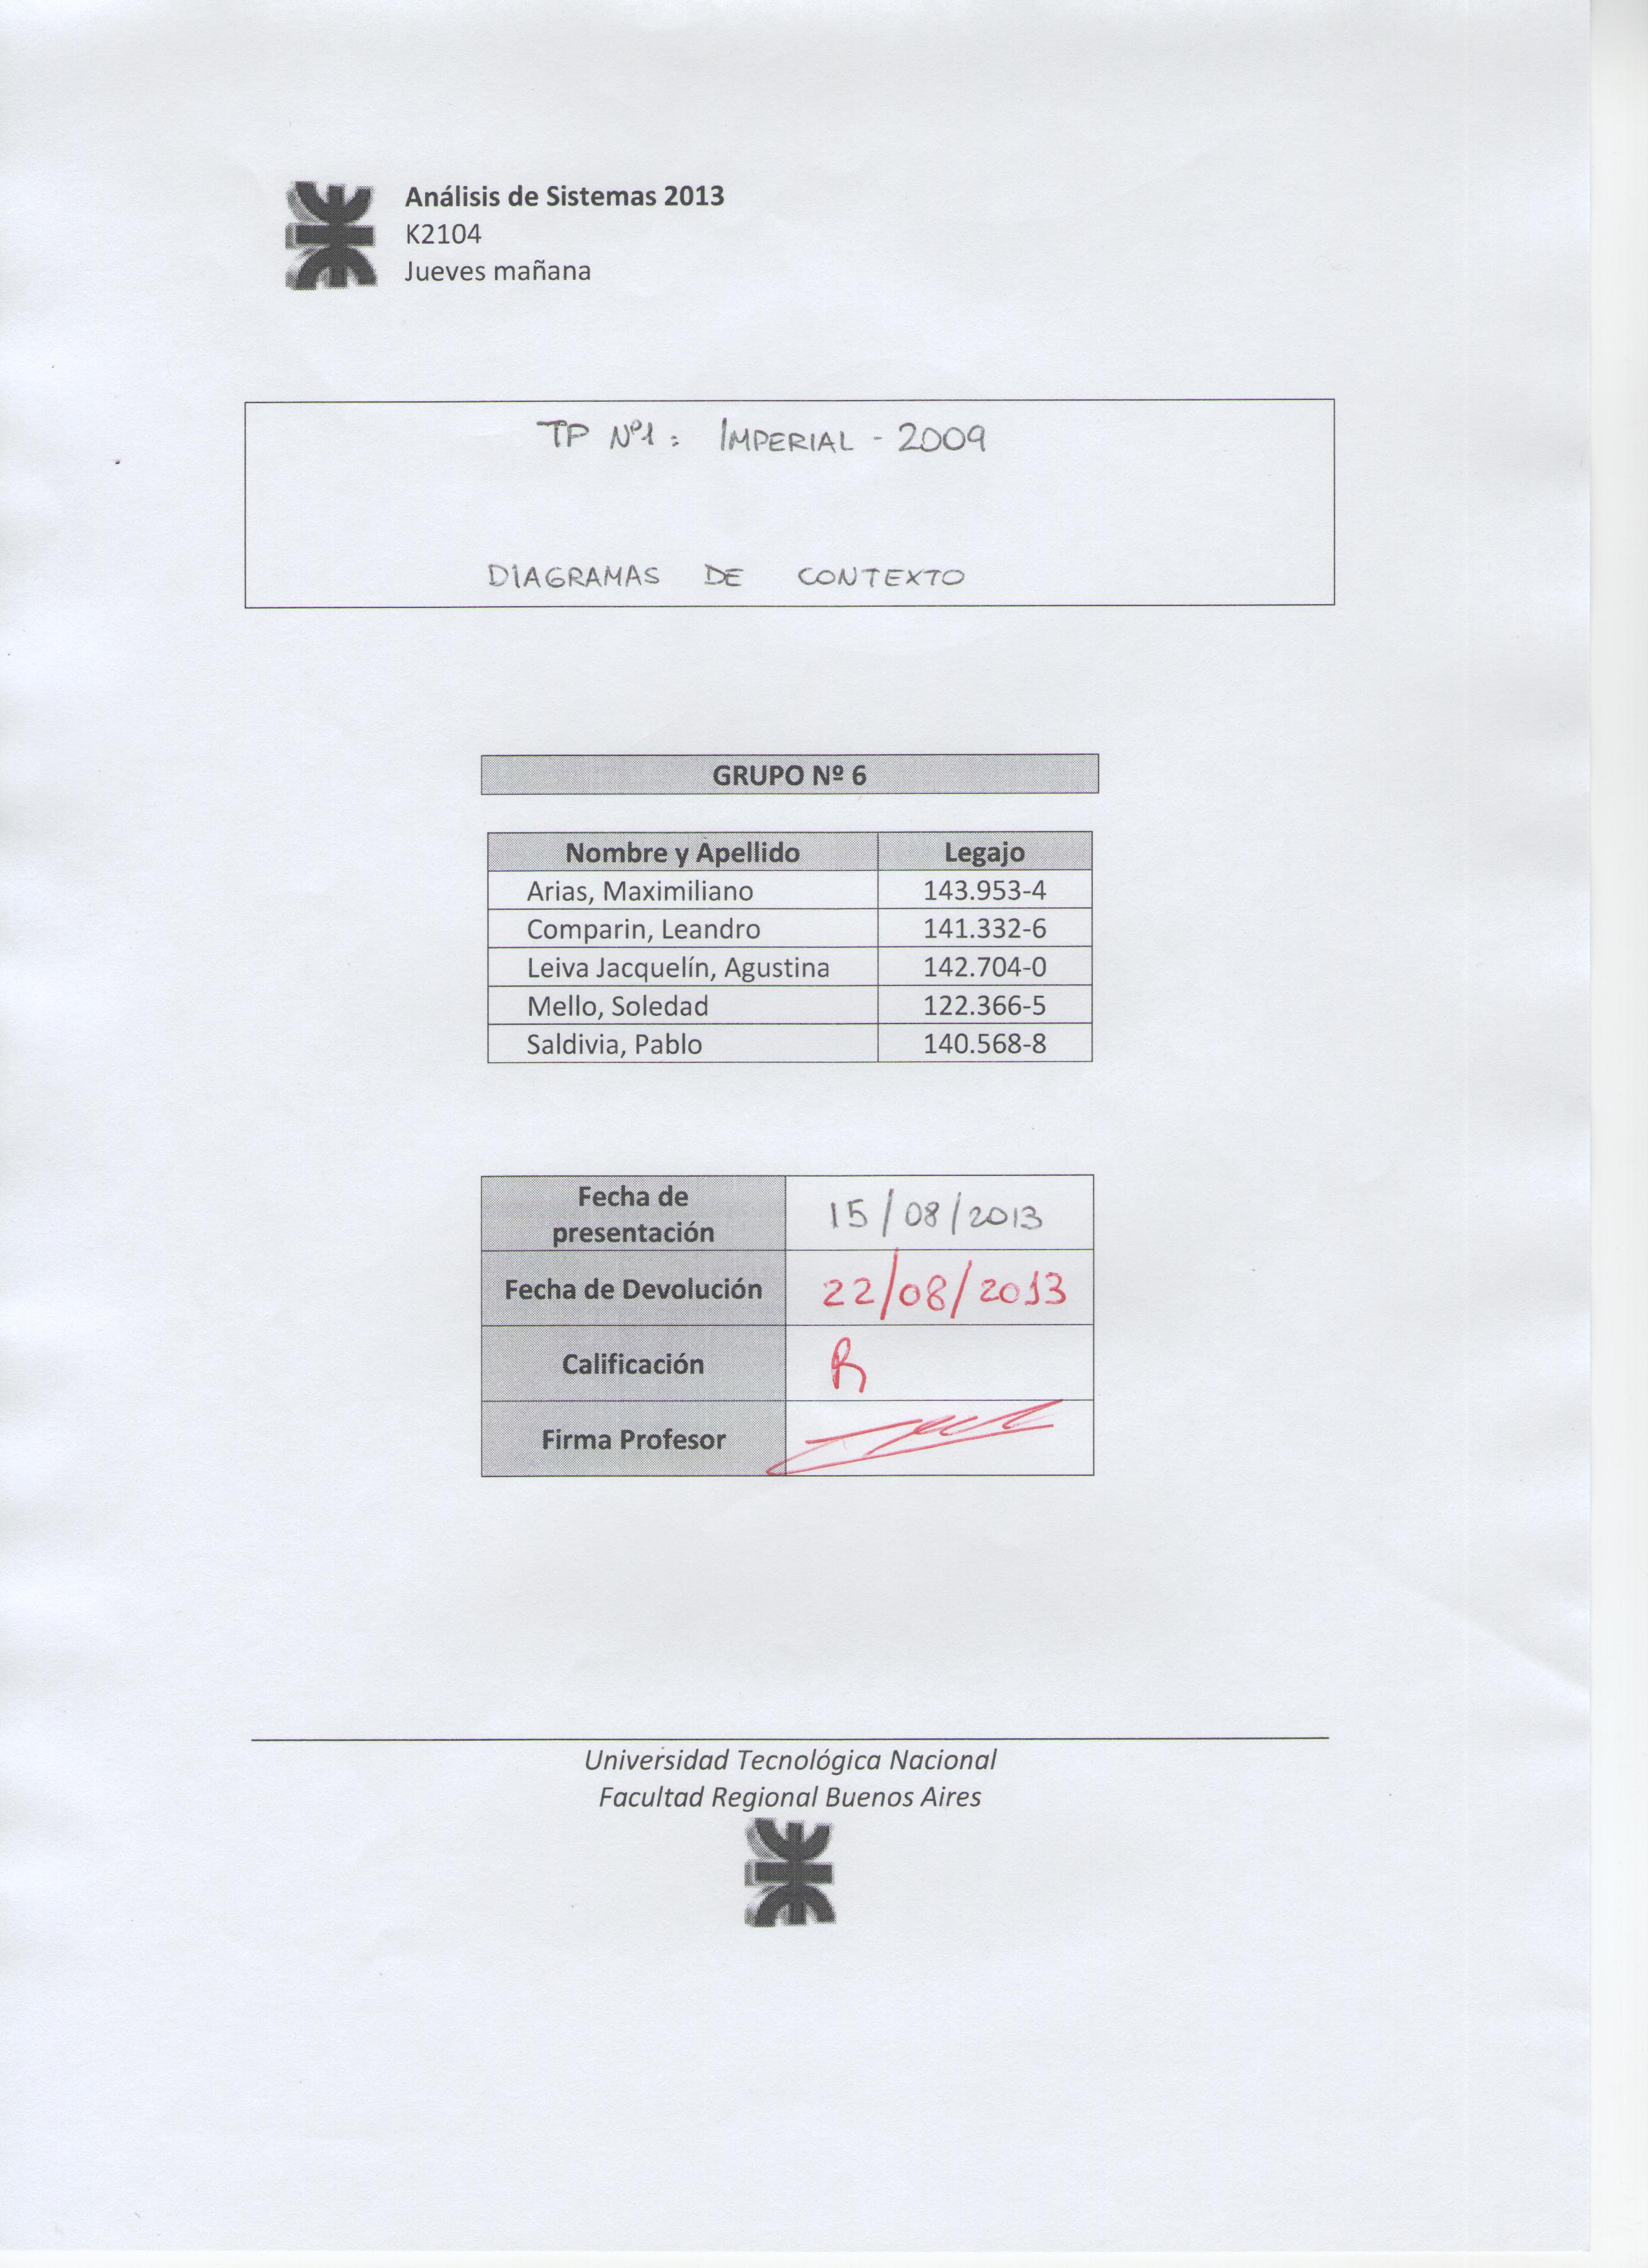 Análisis de Sistemas 2013
K2104
Jueves mañana
TP Nº1: IMPERIAL - 2009
DIAGRAMAS DE CONTEXTO
GRUPO Nº 6
Nombre y Apellido Legajo
Arias, Maximiliano 143.953-4
Comparin, Leandro 141.332-6
Leiva Jacquelín, Agustina 142.704-0
Mello, Soledad 122.366-5
Saldivia, Pablo 140.568-8
Fecha de
presentación 15/08/2013
Fecha de Devolución 22/08/2013
Calificación R
Firma Profesor
Universidad Tecnológica Nacional
Facultad Regional Buenos Aires